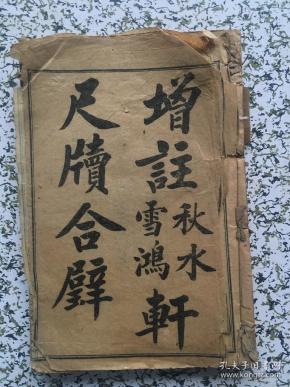 增註秋水軒
雪鴻
尺牘合璧
孔夫子旧书网